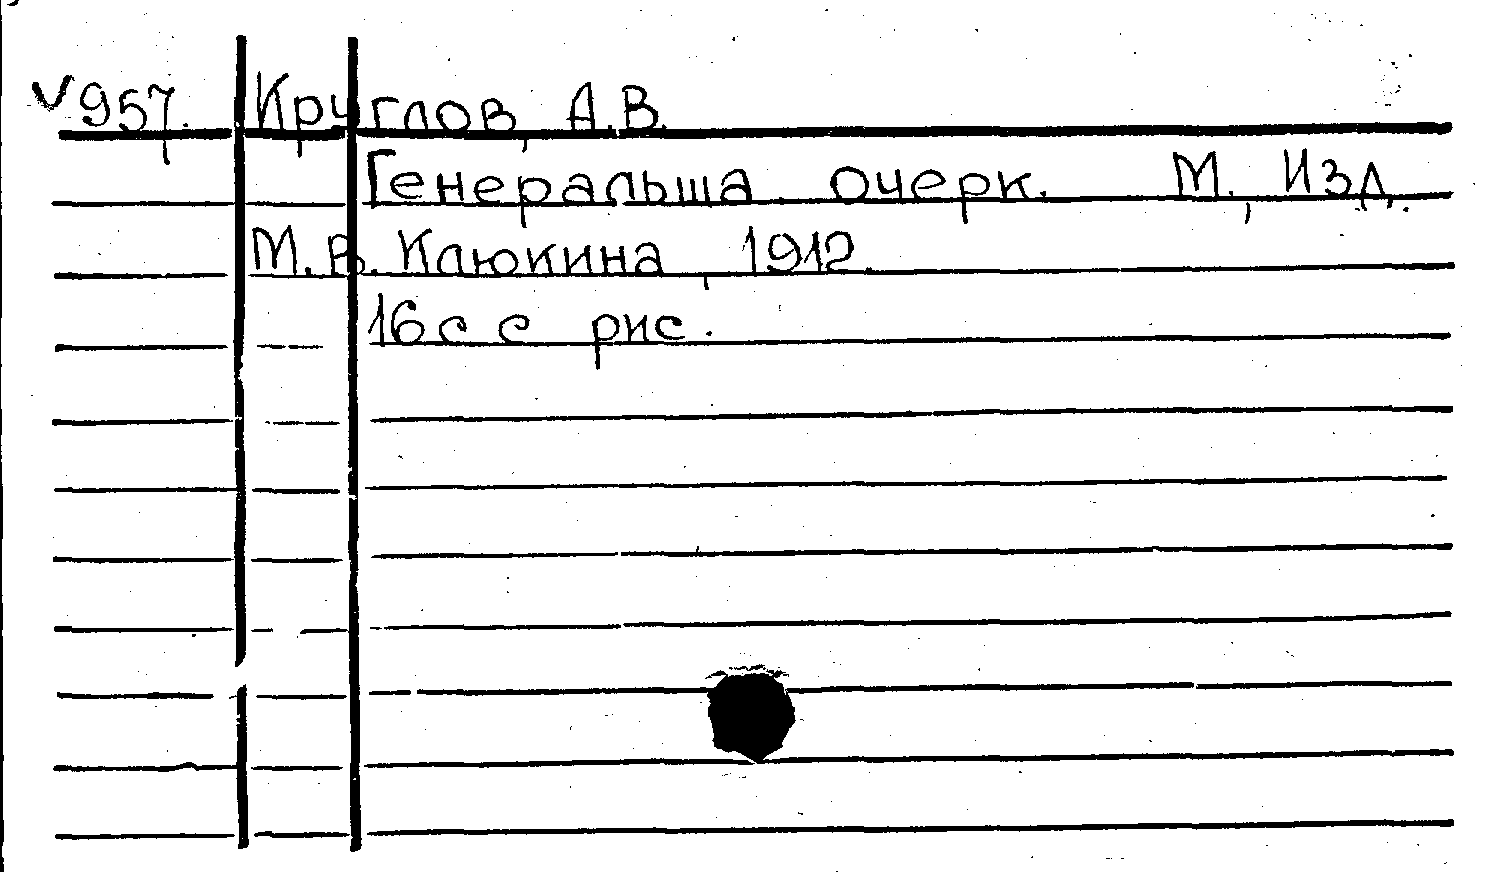 √957. Круглов, А.В.
Генеральша. очерк. М., Изд.
М.В. Клюкина, 1912.
16 с с рис.